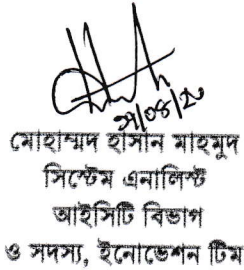 ২৭/০৪/২০
মোহাম্মদ হাসান মাহমুদ
সিস্টেম এনালিস্ট
আইসিটি বিভাগ
ও সদস্য, ইনোভেশন টিম